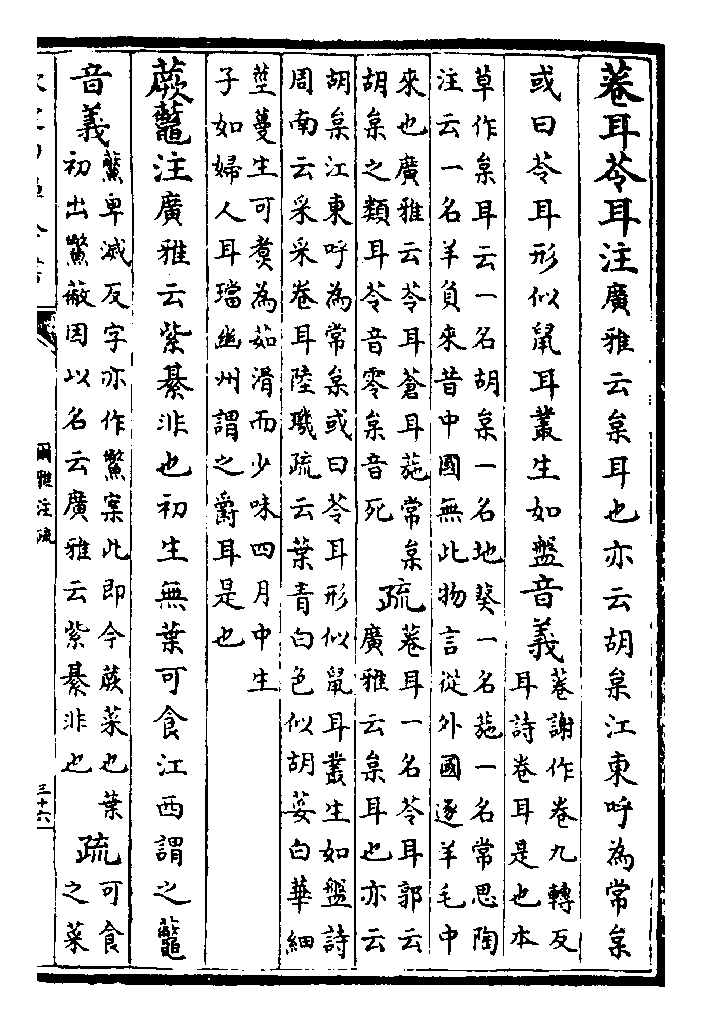 菤耳苓耳注廣雅云枲耳也亦云胡枲江東呼為常枲
或曰苓耳形似鼠耳叢生如盤音義
菤謝作卷九轉反
耳詩卷耳是也本
草作枲耳云一名胡枲一名地葵一名葹一名常思陶
注云一名羊負來昔中國無此物言從外國逐羊毛中
來也廣雅云苓耳蒼耳葹常枲
胡枲之類耳苓音零枲音死
疏
菤耳一名苓耳郭云
廣雅云枲耳也亦云
胡枲江東呼為常枲或曰苓耳形似鼠耳叢生如盤詩
周南云采采卷耳陸璣疏云葉青白色似胡荽白華細
莖蔓生可煑為茹滑而少味四月中生
子如婦人耳璫幽州謂之爵耳是也
蕨虌注廣雅云紫綦非也初生無葉可食江西謂之虌
音義
鷩卑滅反字亦作鷩案此即今蕨菜也葉
初出鷩蔽因以名云廣雅云紫綦非也
疏
可食
之菜
爾雅注疏
三十六